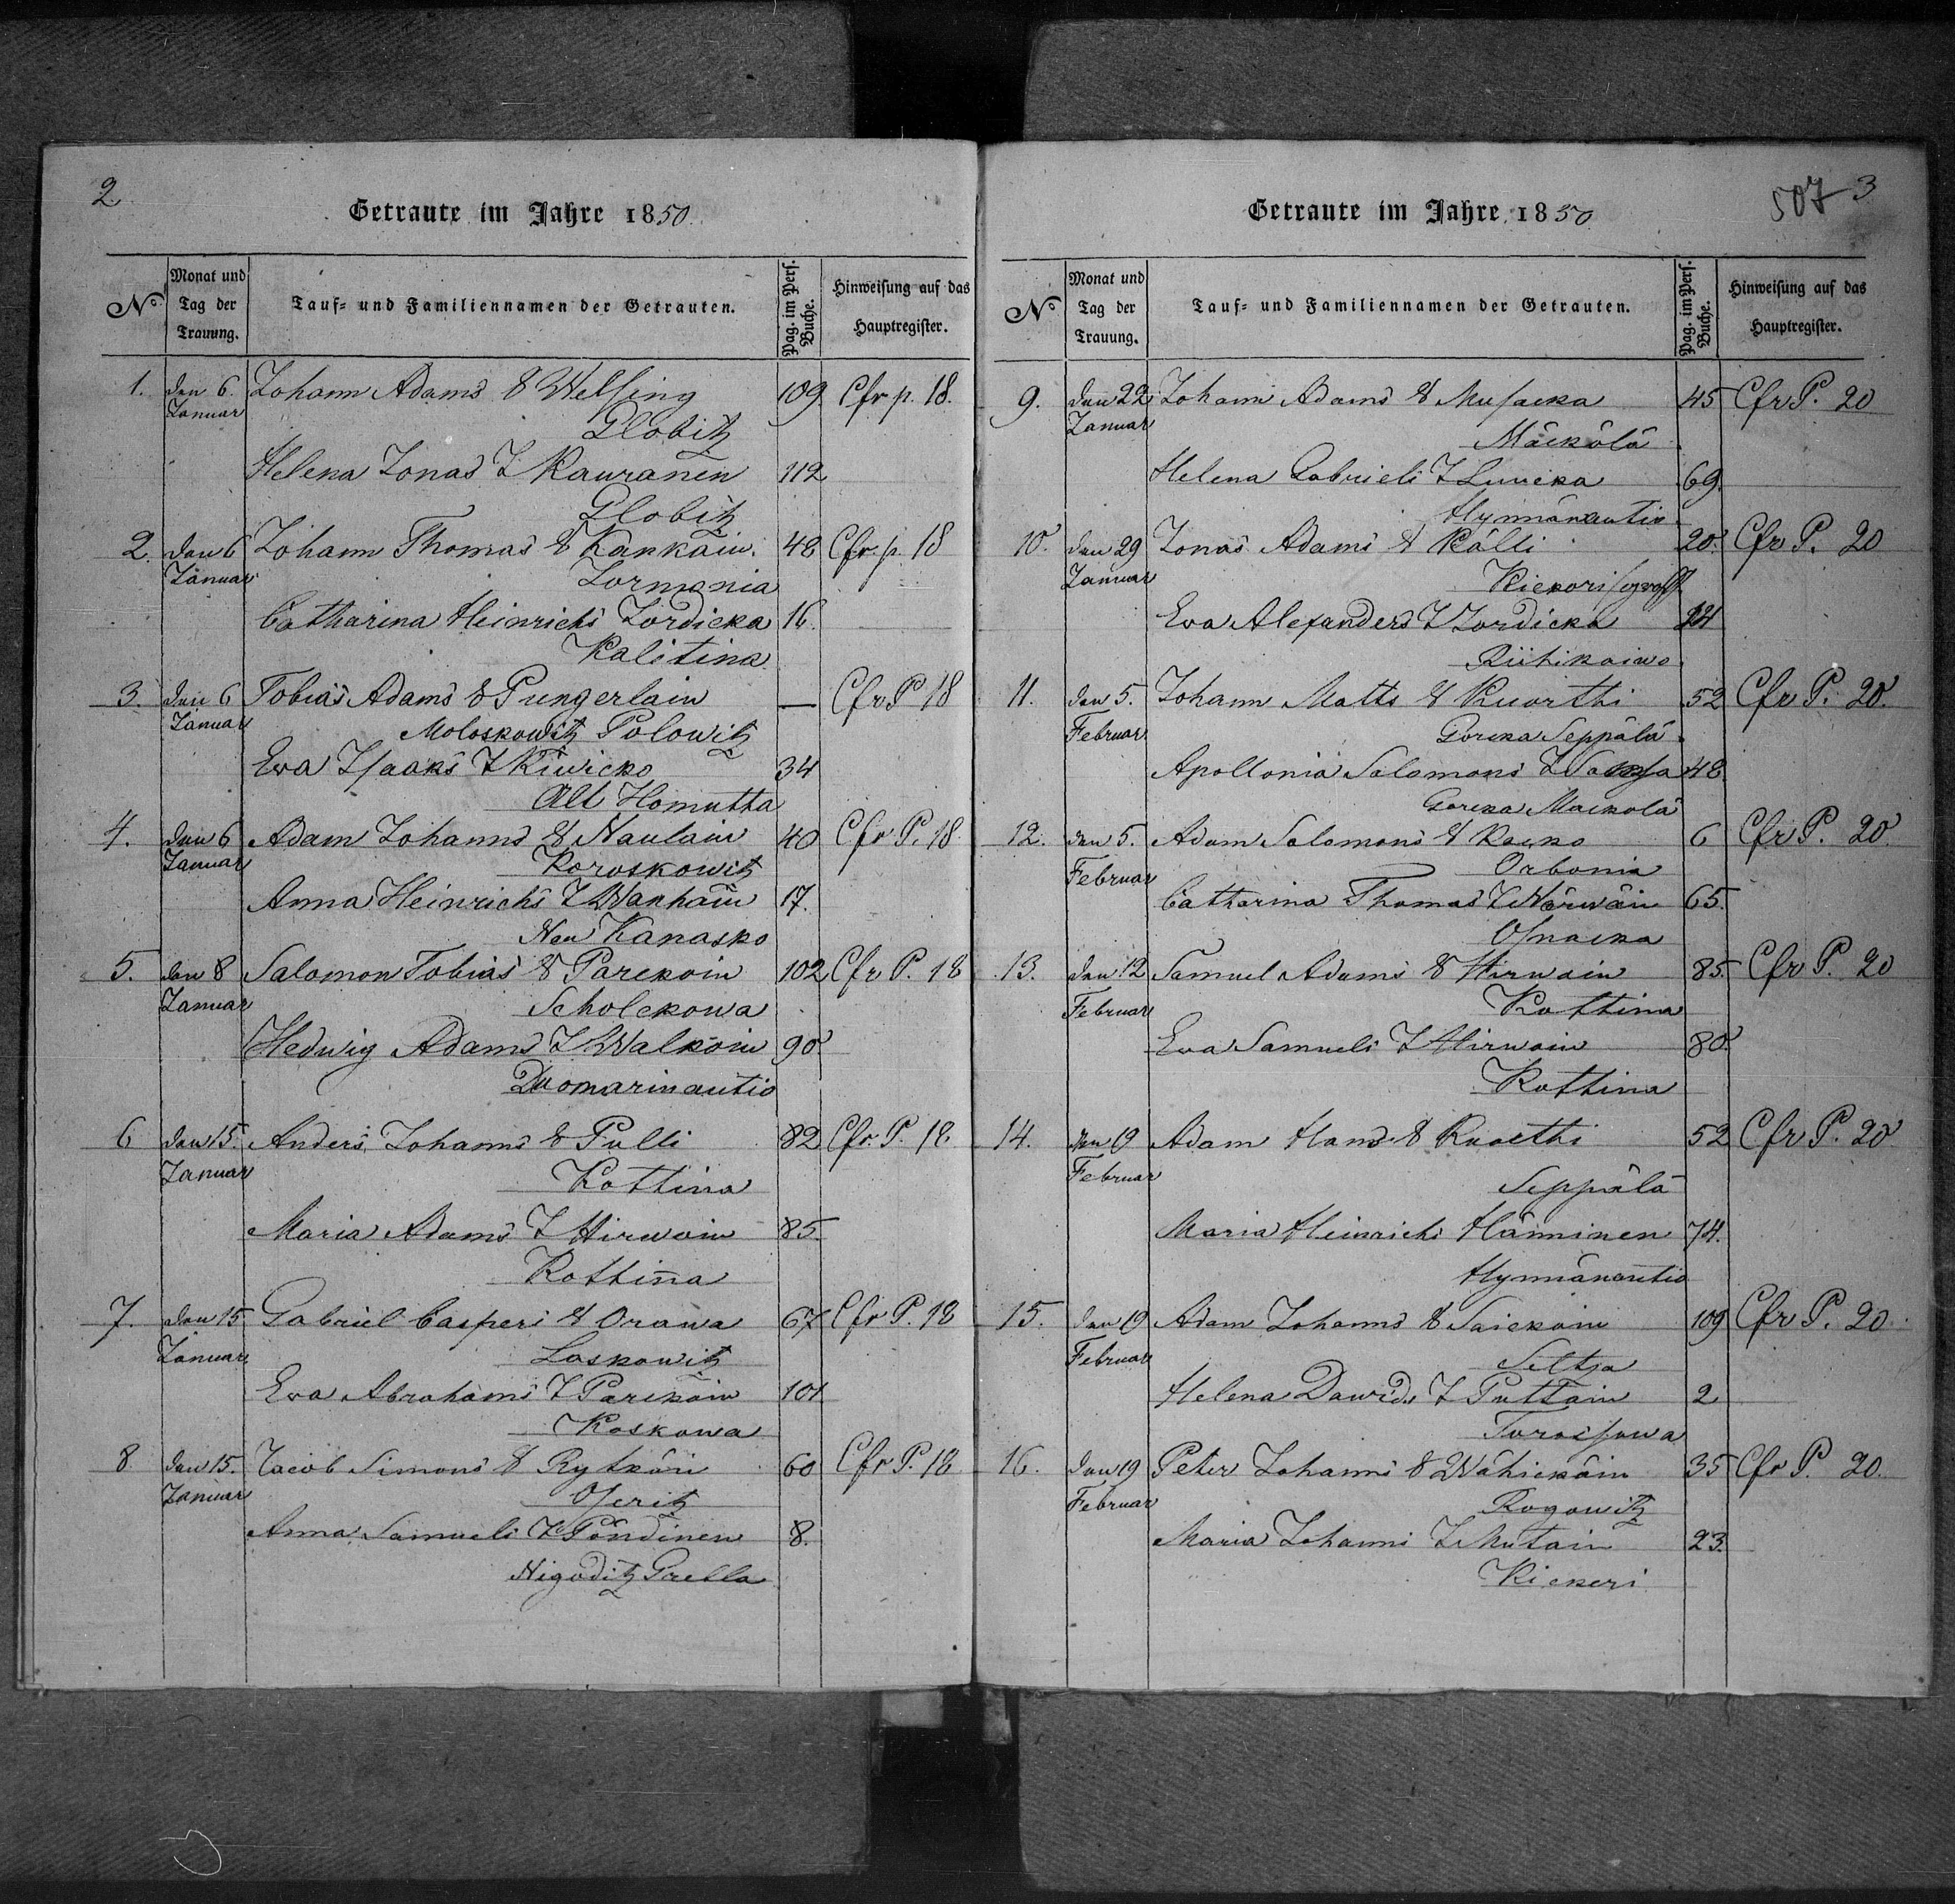 2
Getraute im Jahre 1850.
No Monat und Tag der Trauung. Tauf- und Familiennamen der Getrauten. Pag. im Pers. Buche. Hinweisung auf das Hauptregister.
1. den 6. Januar Johann Adams S Welling 109 Cfr p. 18.
Globitz
Helena Jonas T Kauranen 112
Globitz
2. den 6 Januar Johann Thomas S Kankain 48 Cfr. p. 18
Jormonia
Catharina Heinrichs Jordicka 16.
Kalitina
3. den 6 Januar Tobias Adams S Pungerlain — Cfr P 18
Moloskowitz Polowitz
Ewa Isaaks T Kiwicko 34
Alt Homutta
4. den 6 Januar Adam Johanns S Naulain 40 Cfr P. 18
Koroskowitz
Anna Heinrichs T Wanhain 17.
Neu Kanasko
5. den 8 Januar Salomon Tobias S Parckoin 102 Cfr P. 18
Scholckowa
Hedwig Adams T Walkoin 90.
Duomarinautio
6 den 15. Januar Anders Johanns S Pulli 82 Cfr. P. 18
Kottina
Maria Adams T Hirwoin 85.
Kottina
7. den 15 Januar Gabriel Caspers S Orawa 67 Cfr P. 18
Laskowitz
Ewa Abrahams T Parckoin 101
Koskowa
8 den 15. Januar Jacob Simons S Rytkön 60 Cfr P. 18
Oseritz
Anna Samuels T Pöndinen 8.
Nigoditz Grebla
507 3
Getraute im Jahre 1850
No Monat und Tag der Trauung. Tauf- und Familiennamen der Getrauten. Pag. im Pers. Buche. Hinweisung auf das Hauptregister.
9. den 22 Januar Johann Adams S Musacka 45 Cfr P. 20
Mäckölä
Helena Gabriels T 69.
Hynnänautio
10. den 29 Januar Jonas Adams S Källi 20. Cfr P. 20
Ewa Alexanders T Jordicka 14
Riihikaiwo
11. den 5. Februar Johann Matts S Kuorthi 52 Cfr P. 20.
Gorcka Seppälä
Apollonia Salomons T 48
Gorcka Mackola
12. den 5. Februar Adam Salomons S Kocko 6 Cfr P. 20.
Orbonia
Catharina Thomas T Närwäin 65.
Osnacka
13. den 12 Februar Samuel Adams S Hirwoin 85. Cfr P. 20
Kottina
Ewa Samuels T Hirwoin 80.
Kottina
14. den 19 Februar Adam Hans S Kuorthi 52 Cfr P. 20
Seppälä
Maria Heinrichs Hänninen 74.
Hynnänautio
15. den 19 Februar Adam Johanns S Saickoin 109 Cfr P. 20
Seltza
Helena Dawids T Puttain 2
Torossowa
16. den 19 Februar Peter Johanns S Wähickäin 35 Cfr P. 20.
Rogowitz
Maria Johanns T Mutain 23.
Kickeri